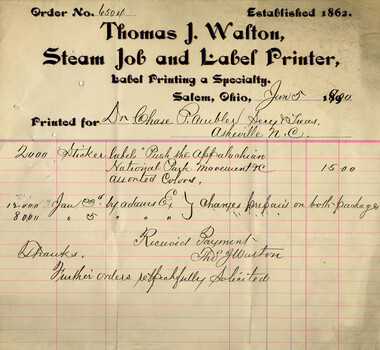 Order No. 6504 Established 1862.
Thomas J. Walton,
Steam Job and Label Printer,
Label Printing a Specialty.
Salem, Ohio, Jan 5 1900
Printed for Dr Chase P. Ambler Secy & Treas.
Asheville N.C.
2000 Sticker labels "Push the Appalachian
National Park movement &c 15 00
assorted Colors,
12000 Jan 3d by adams Ex } Charges prepaid on both packages
8000 " 5 " " "
Received Payment
Thos J Walton
Thanks,
Further orders respectfully Solicited